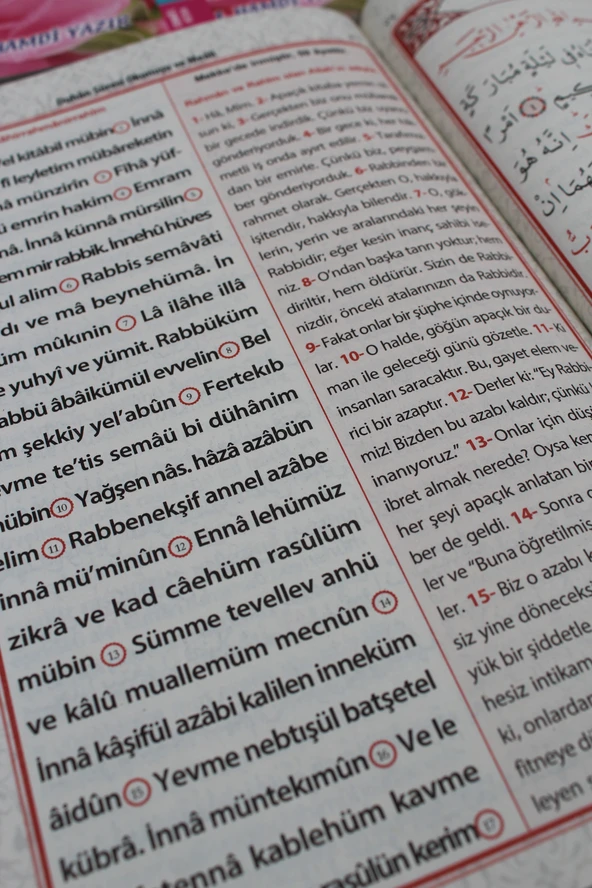 HAMDİ YAZIR
Duhân Sûresi Okunuşu ve Meâli
Mekke'de inmiştir, 59 Âyettir.
kitâbil mübin 1 İnnâ
fî leyletim mübâreketin
münzirîn 3 Fîhâ yüf-
emrin hakim 4 Emram
İnnâ künnâ mürsilîn 5
mir rabbik. İnnehû hüves
alim 6 Rabbis semâvâti
dı ve mâ beynehümâ. İn
mûkınin 7 Lâ ilâhe illâ
yuhyî ve yümit. Rabbüküm
âbâikümül evvelin 8 Bel
şekkiy yel'abûn 9 Fertekıb
te'tis semâü bi dühânim
10 Yağşen nâs. hâzâ azâbün
elim 11 Rabbenekşif annel azâbe
innâ mü'minûn 12 Ennâ lehümüz
zikrâ ve kad câehüm rasûlüm
mübin 13 Sümme tevellev anhü
ve kâlû muallemüm mecnûn 14
İnnâ kâşifül azâbi kalilen inneküm
âidûn 15 Yevme nebtışül batşetel
kübrâ. İnnâ müntekımûn 16 Ve le
kablehüm kavme
rasûlün kerim 17
1- Hâ, Mîm. 2- Apaçık kitaba
sun ki, 3- Gerçekten biz onu mübarek
bir gecede indirdik. Çünkü biz
gönderiyorduk. 4- Bir gece ki, her
metli iş onda ayırt edilir. 5-
dan bir emirle. Çünkü biz, peygam-
ber gönderiyorduk. 6- Rabbinden bir
rahmet olarak. Gerçekten O, hakkıyla
işitendir, hakkıyla bilendir. 7- O, gök-
lerin, yerin ve aralarındaki her şeyin
Rabbidir; eğer kesin inanç sahibi ise-
niz. 8- O'ndan başka tanrı yoktur; hem
diriltir, hem öldürür. Sizin de Rabbi-
nizdir, önceki atalarınızın da Rabbidir.
9- Fakat onlar bir şüphe içinde oynuyor-
lar. 10- O halde, göğün apaçık bir du-
man ile geleceği günü gözetle. 11- Ki
insanları saracaktır. Bu, gayet elem ve-
rici bir azaptır. 12- Derler ki: "Ey Rabbi-
miz! Bizden bu azabı kaldır; çünkü
inanıyoruz." 13- Onlar için
ibret almak nerede? Oysa
her şeyi apaçık anlatan bir
ber de geldi. 14- Sonra
ler ve "Buna öğretilmiş
ler. 15- Biz o azabı
siz yine döneceks
yük bir şiddetle
hesiz intikam
ki, onlardan
fitneye
leyen
لَيْلَةٍ مُبَارَكَةٍ
إِنَّهُ هُوَ